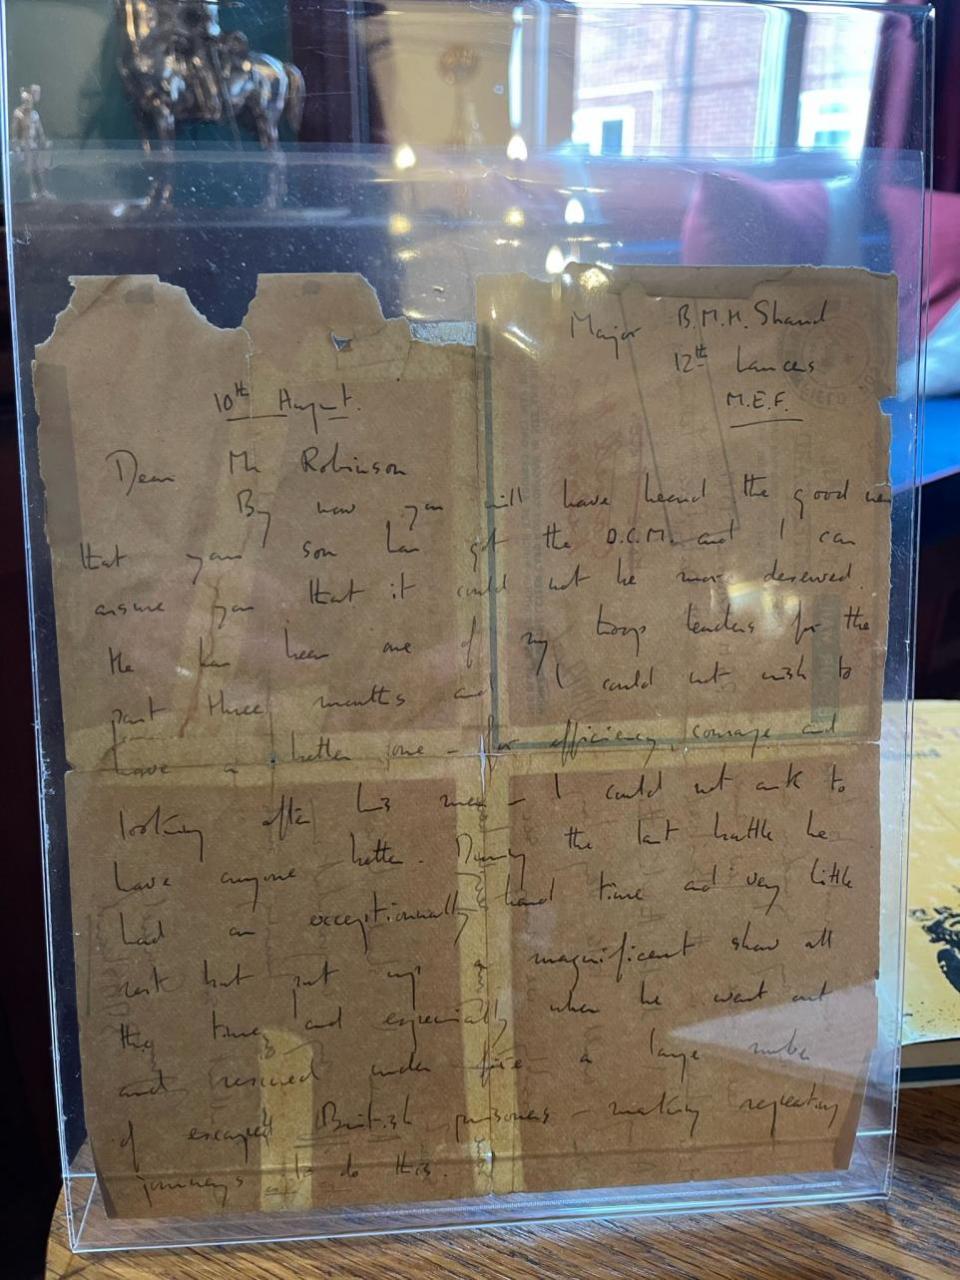 Major B.M.H. Shand
12th Lancers
M.E.F.
10th August.
Dear Mr Robinson
By now you will have heard the good news
that your son has got the D.C.M. and I can
assure you that it could not be more deserved.
He has been one of my troop leaders for the
past three months and I could not wish to
have a better one – for efficiency, courage and
looking after his men – I could not ask to
have anyone better. During the last battle he
had an exceptionally hard time and very little
rest but put up a magnificent show all
the time and especially when he went out
and rescued under fire a large number
of escaped British prisoners – making repeating
journeys to do this.